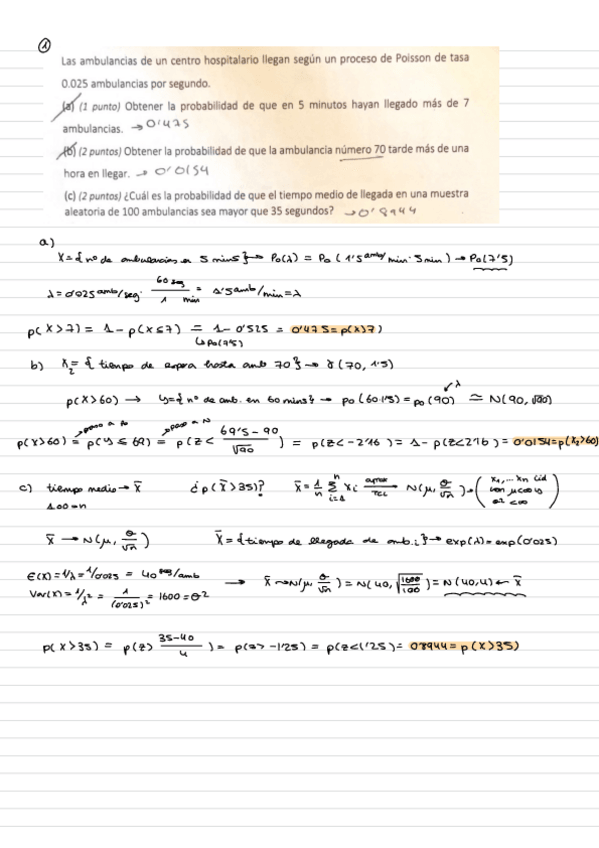 ①
Las ambulancias de un centro hospitalario llegan según un proceso de Poisson de tasa
0.025 ambulancias por segundo.
(a) (1 punto) Obtener la probabilidad de que en 5 minutos hayan llegado más de 7
ambulancias. → 0'475
(b) (2 puntos) Obtener la probabilidad de que la ambulancia número 70 tarde más de una
hora en llegar. → 0'0154
(c) (2 puntos) ¿Cuál es la probabilidad de que el tiempo medio de llegada en una muestra
aleatoria de 100 ambulancias sea mayor que 35 segundos? → 0'8944
a)
X = { nº de ambulancias en 5 mins } → Po(λ) = Po (1'5 amb/min · 5 min) → Po(7'5)
λ = 0'025 amb/seg · 60 seg / 1 min = 1'5 amb/min = λ
p(X > 7) = 1 - p(X ≤ 7) = 1 - 0'525 = 0'475 = p(X > 7)
↳ Po(7'5)
b) X₂ = { tiempo de espera hasta amb 70 } → γ (70, 1'5)
p(X > 60) → Y = { nº de amb. en 60 mins } → po (60·1'5) = po (90) ≃ N(90, √90)
λ
paso a Po paso a N
p(X > 60) = p(Y ≤ 69) = p(Z < 69'5 - 90 / √90) = p(Z < -2'16) = 1 - p(Z < 2'16) = 0'0154 = p(X₂ > 60)
c) tiempo medio → X̄ ¿p(X̄ > 35)? X̄ = 1/n Σ xi (i=1, n) → TCL N(μ, σ/√n) * (x₁, ... xn iid con μ<∞ y σ²<∞)
100 = n
X̄ → N(μ, σ/√n) X̄ = { tiempo de llegada de amb. i } → exp(λ) = exp(0'025)
E(X) = 1/λ = 1/0'025 = 40 seg/amb → X̄ ~ N(μ, σ/√n) = N(40, √1600/100) = N(40, 4) ← X̄
Var(X) = 1/λ² = 1/(0'025)² = 1600 = σ²
p(X > 35) = p(Z > 35-40 / 4) = p(Z > -1'25) = p(Z < 1'25) = 0'8944 = p(X > 35)